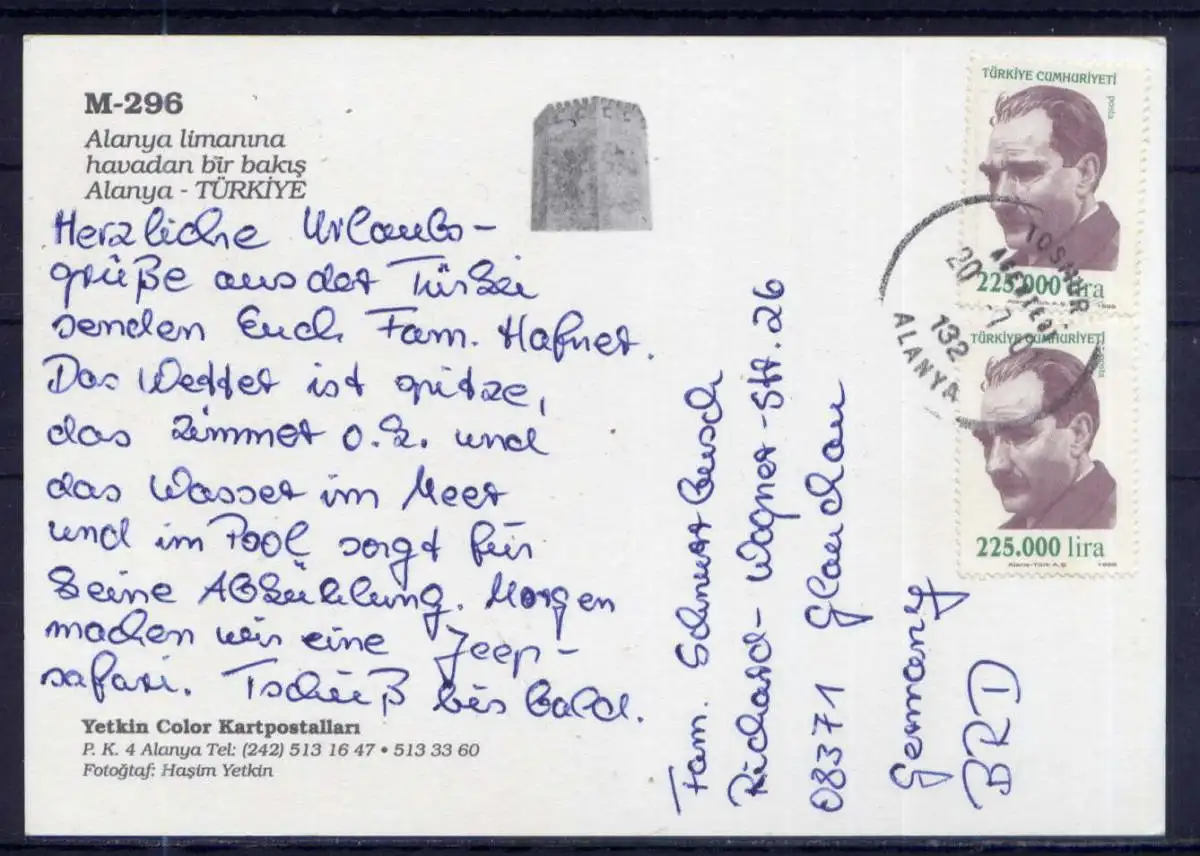 M-296
Alanya limanına
havadan bir bakış
Alanya - TÜRKİYE
Herzliche Urlaubs-
grüße aus der Türkei
senden Euch Fam. Hafner.
Das Wetter ist spitze,
das Zimmer o.k. und
das Wasser im Meer
und im Pool sorgt für
keine Abkühlung. Morgen
machen wir eine Jeep-
safari. Tschüß bis bald.
Yetkin Color Kartpostalları
P. K. 4 Alanya Tel: (242) 513 16 47 • 513 33 60
Fotoğtaf: Haşim Yetkin
TÜRKİYE CUMHURİYETİ
posta
225.000 lira
1998
TÜRKİYE CUMHURİYETİ
posta
225.000 lira
1998
TOSMUR
20 7
132
ALANYA
Fam.
Richard-Wagner-Str. 26
08371 Glauchau
Germany
BRD